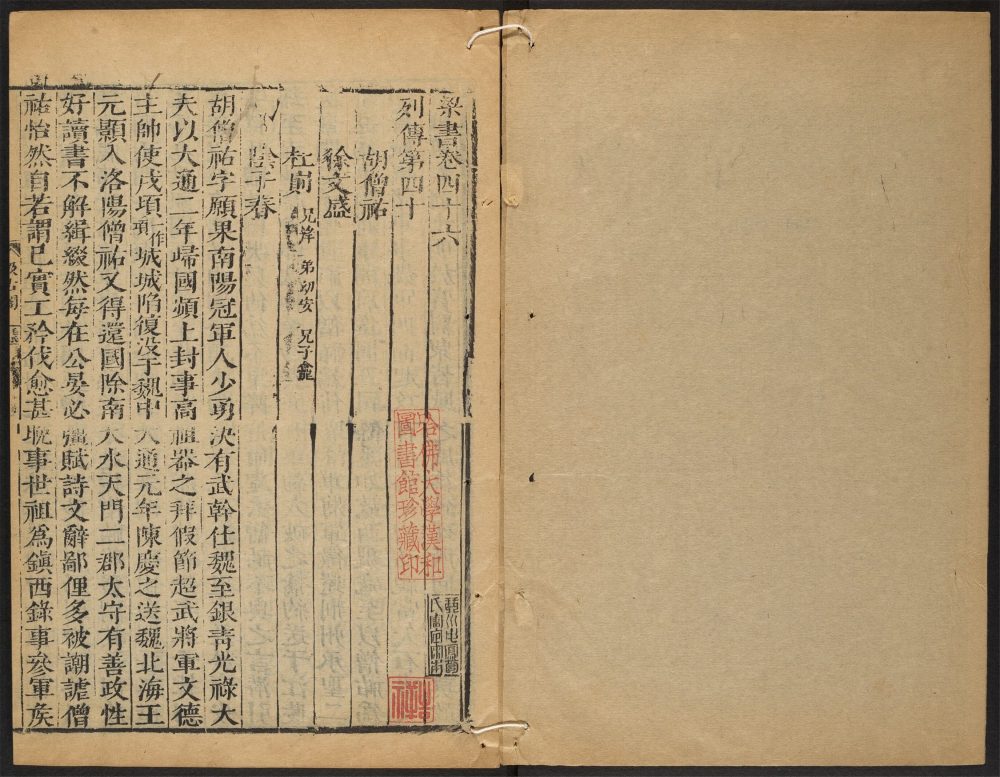 梁書卷四十六
列傳第四十
胡僧祐
徐文盛
杜崱 兄岸 弟幼安 兄子龕
陰子春
胡僧祐字願果南陽冠軍人少勇決有武幹仕魏至銀青光祿大
夫以大通二年歸國頻上封事高祖器之拜假節超武將軍文德
主帥使戍項一作項城城陷復没于魏中大通元年陳慶之送魏北海王
元顥入洛陽僧祐又得還國除南天水天門二郡太守有善政性
好讀書不解緝綴然每在公宴必彊賦詩文辭鄙俚多被謿謔僧
祐怡然自若謂己實工矜伐愈甚晚事世祖爲鎭西錄事參軍矦
哈佛大學漢和
圖書館珍藏印